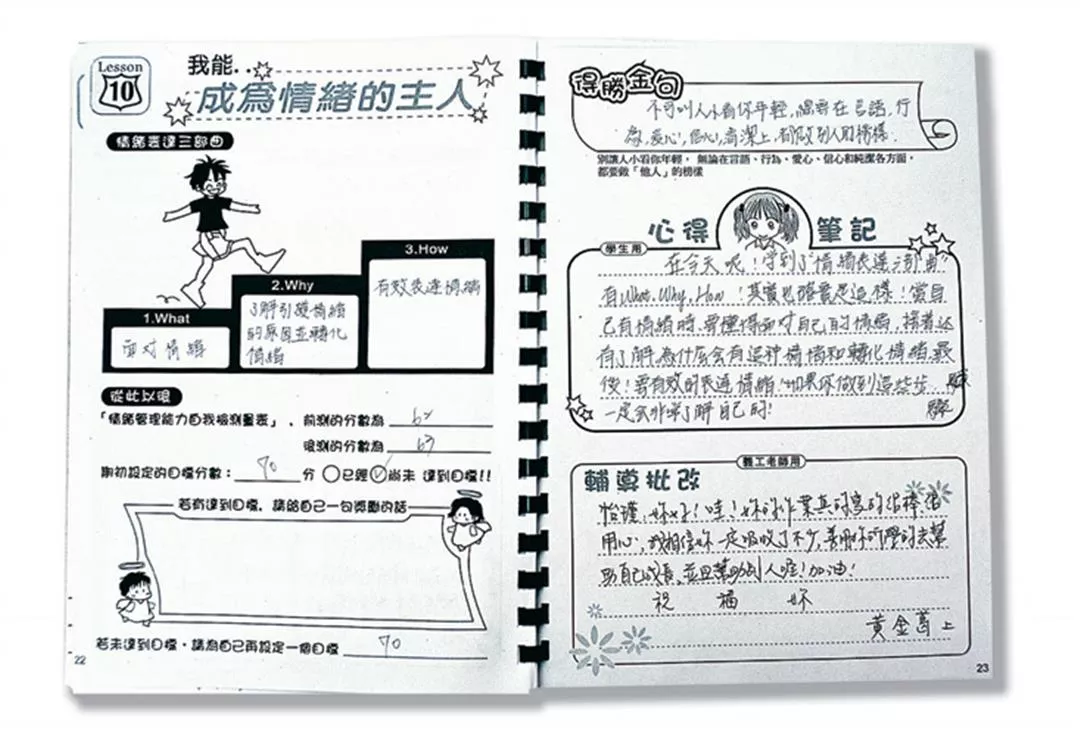 Lesson
10
我能..
成為情緒的主人
情緒表達三部曲
3.How
有效表達情緒
2.Why
了解引擾情緒
的原因並轉化
情緒
1.What
面對情緒
從此以後
「情緒管理能力自我檢測量表」，前測的分數為 62
後測的分數為 63
期初設定的目標分數：70 分 ○已經 ✓尚未 達到目標!!
若有達到目標，請給自己一句獎勵的話
若未達到目標，請為自己再設定一個目標 70
22
得勝金句
不可叫人小看你年輕，總要在言語，行
為，愛心，信心，清潔上，都做別人的榜樣.
別讓人小看你年輕，無論在言語、行為、愛心、信心和純潔各方面，
都要做「他人」的榜樣
心得筆記
學生用
在今天呢！學到了情緒表達三部曲
有What、Why、How！其實也確實是這樣！當自
己有情緒時，要懂得面對自己的情緒，接著還
有了解為什麼會有這種情緒和轉化情緒，最
後！要有效的表達情緒！如果你做到這些步驟
一定會非常了解自己的！
義工老師用
輔導批改
怡瑾，妳好！哇！妳的作業真的寫的很棒很
用心，我相信妳一定吸收了不少，善用你所學的去幫
助自己成長，並且幫助別人喔！加油！
祝福妳
黃金萬 上
23